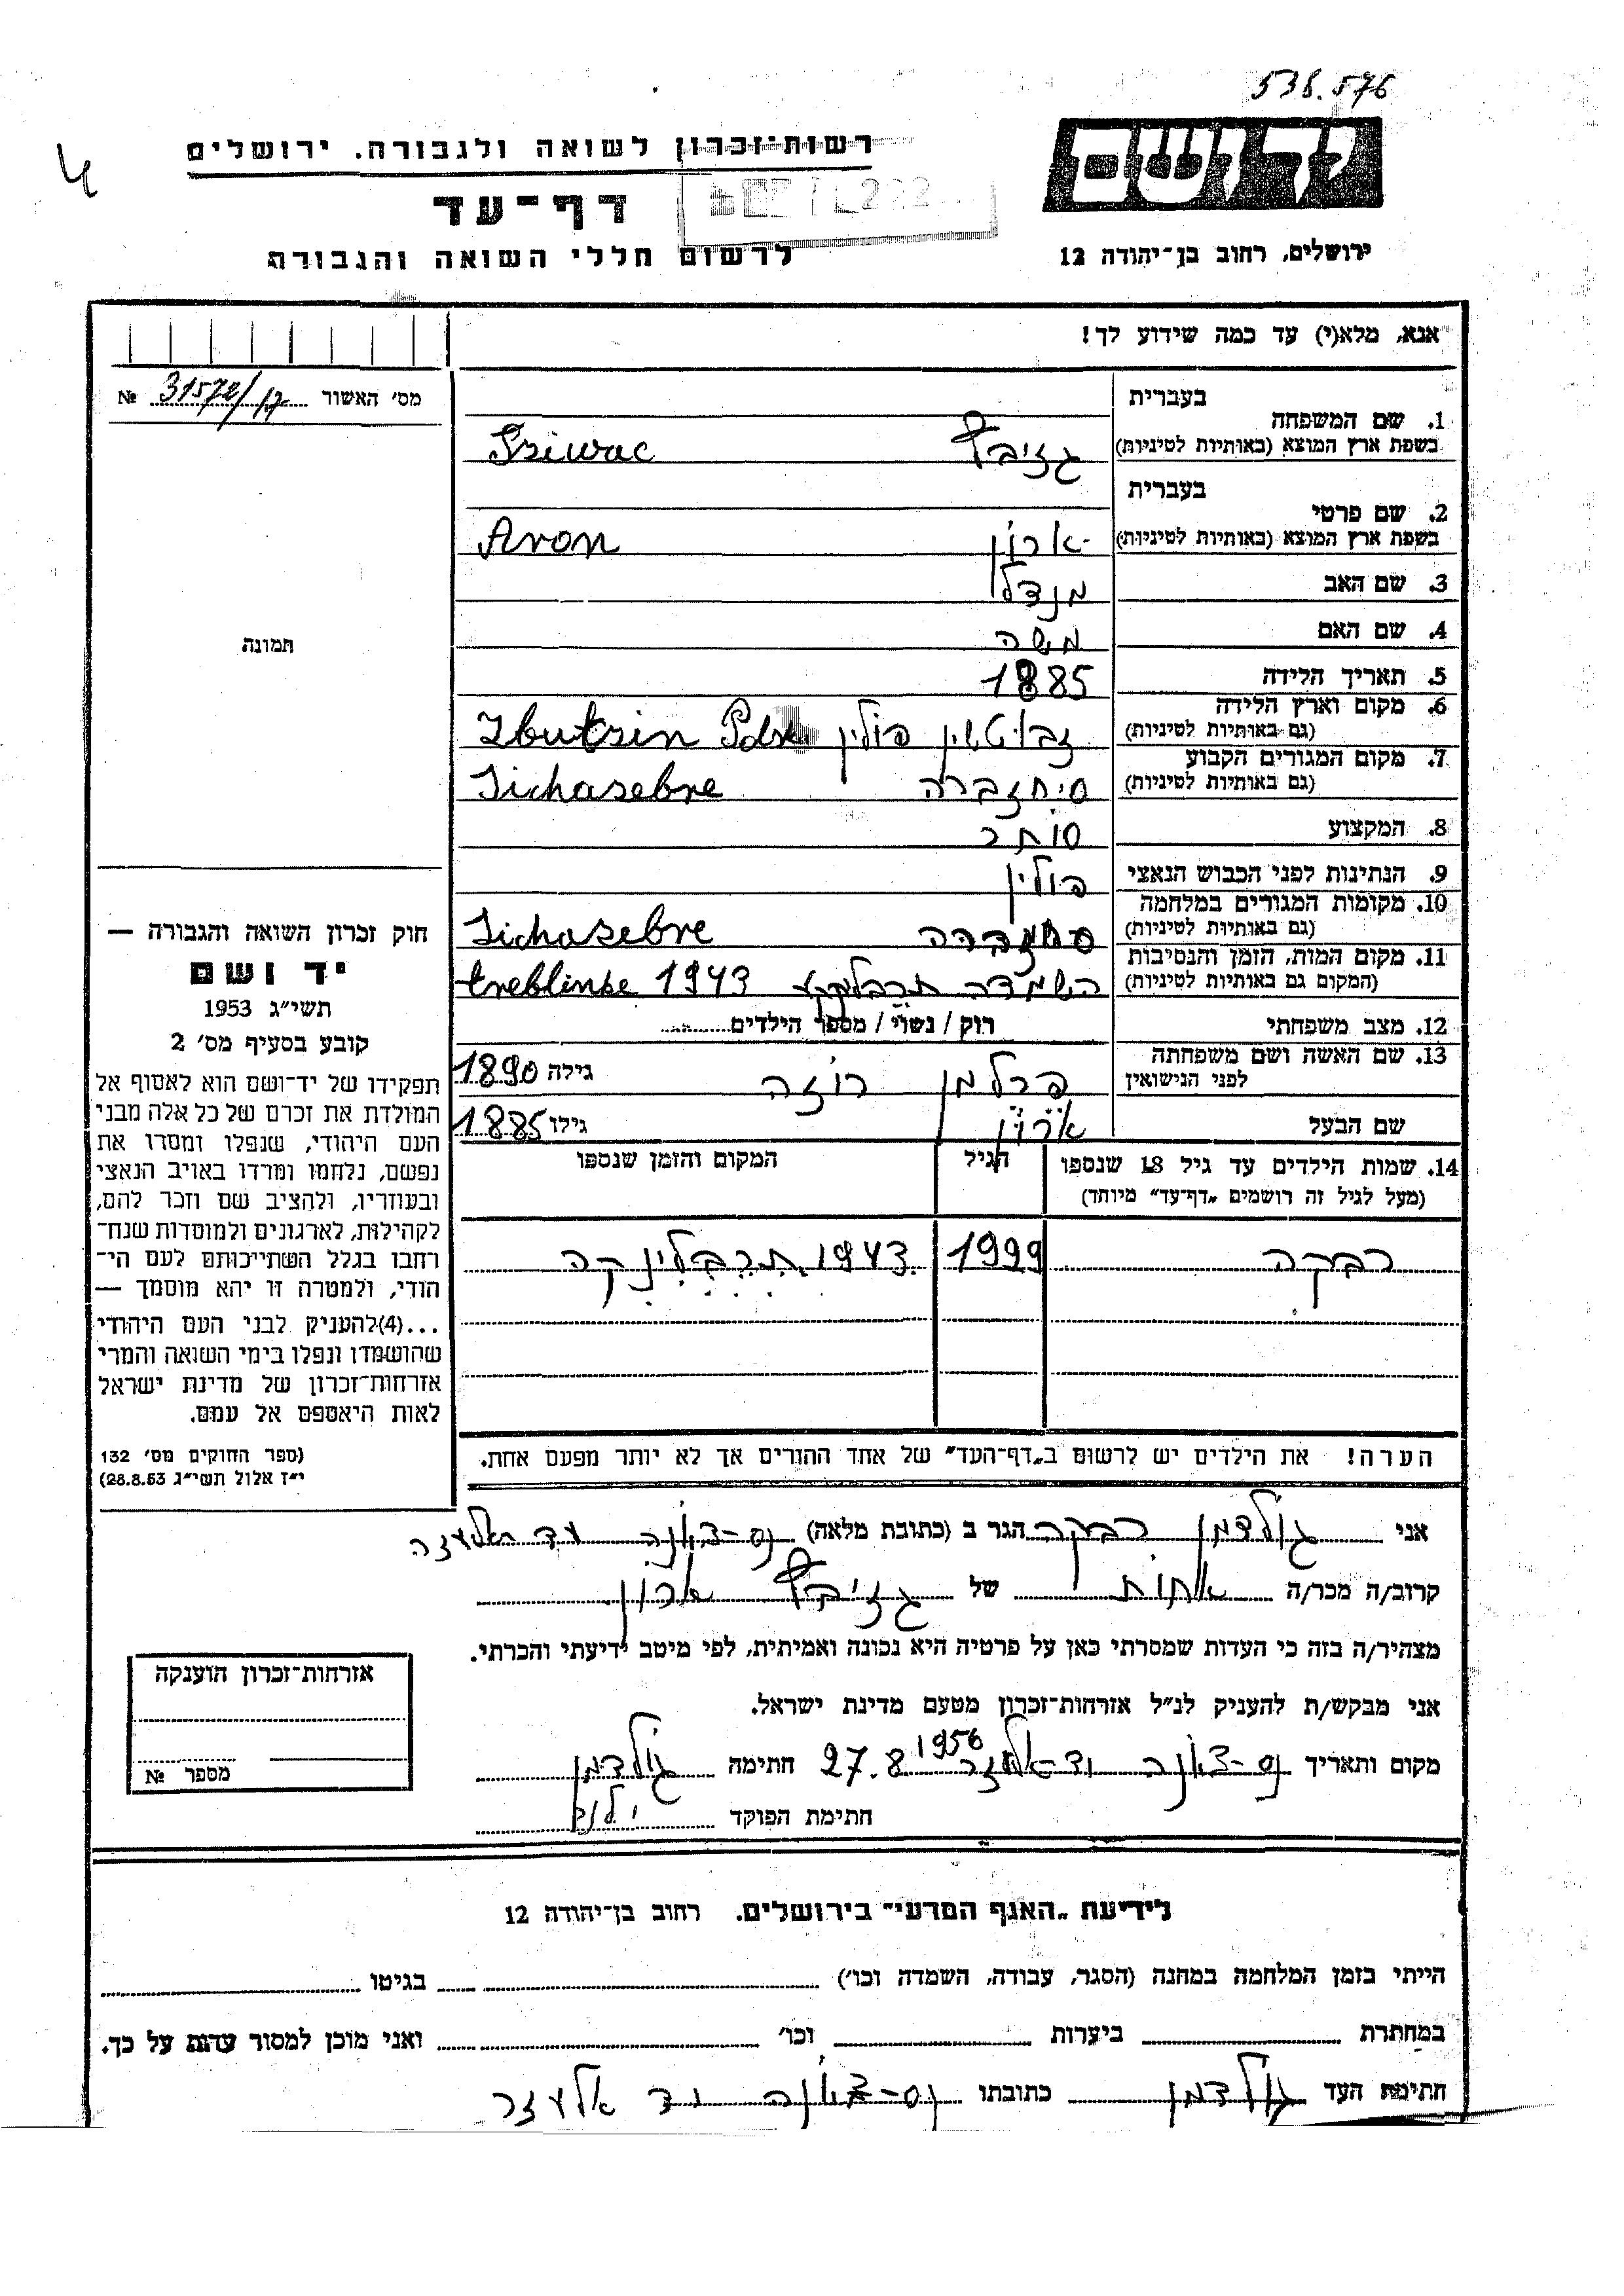 538.576
יד ושם
רשות־זכרון לשואה ולגבורה. ירושלים
דף־עד
לרשום חללי השואה והגבורה
ירושלים, רחוב בן־יהודה 12
אנא, מלא(י) עד כמה שידוע לך!
מס׳ האשור 31572/17 №
בעברית
1. שם המשפחה
בשפת ארץ המוצא (באותיות לטיניות) Griwac
בעברית
2. שם פרטי
בשפת ארץ המוצא (באותיות לטיניות) ארון Aron
3. שם האב מנדל
4. שם האם משה
תמונה
5. תאריך הלידה 1885
6. מקום וארץ הלידה
(גם באותיות לטיניות) זבוטשין פולין Zbutzin
7. מקום המגורים הקבוע
(גם באותיות לטיניות) סיחזברה Sichasebre
8. המקצוע סוחר
9. הנתינות לפני הכבוש הנאצי פולין
10. מקומות המגורים במלחמה
(גם באותיות לטיניות) Sichasebre
11. מקום המות, הזמן והנסיבות
(המקום גם באותיות לטיניות) השמדה treblinke 1943
12. מצב משפחתי רוק / נשוי / מספר הילדים
13. שם האשה ושם משפחתה
לפני הנישואין פרלמן רוזה גילה 1890
שם הבעל ארון גילו 1885
14. שמות הילדים עד גיל 18 שנספו הגיל המקום והזמן שנספו
(מעל לגיל זה רושמים „דף־עד״ מיוחד)
רבקה 1999 1943 תרבלינקה
הערה! את הילדים יש לרשום ב„דף־העד״ של אחד ההורים אך לא יותר מפעם אחת.
חוק זכרון השואה והגבורה —
יד ושם
תשי״ג 1953
קובע בסעיף מס׳ 2
תפקידו של יד־ושם הוא לאסוף אל
המולדת את זכרם של כל אלה מבני
העם היהודי, שנפלו ומסרו את
נפשם, נלחמו ומרדו באויב הנאצי
ובעוזריו, ולהציב שם וזכר להם,
לקהילות, לארגונים ולמוסדות שנח־
רחבו בגלל השתייכותם לעם הי־
הודי, ולמטרה זו יהא מוסמך —
...(4)להעניק לבני העם היהודי
שהושמדו ונפלו בימי השואה והמרי
אזרחות־זכרון של מדינת ישראל
לאות היאספם אל עמם.
(ספר החוקים מס׳ 132
י״ז אלול תשי״ג 28.8.53)
אני גולדמן רבקה הגר ב (כתובת מלאה) נס-ציונה
קרוב/ה מכר/ה אחות של ארון
מצהיר/ה בזה כי העדות שמסרתי כאן על פרטיה היא נכונה ואמיתית, לפי מיטב ידיעתי והכרתי.
אני מבקש/ת להעניק לנ״ל אזרחות־זכרון מטעם מדינת ישראל.
מקום ותאריך נס-ציונה 27.8 1956 חתימה גולדמן
חתימת הפוקד
אזרחות־זכרון הוענקה
מספר №
לידיעת „האגף המדעי״ בירושלים. רחוב בן־יהודה 12
הייתי בזמן המלחמה במחנה (הסגר, עבודה, השמדה וכו׳) בגיטו
במחתרת ביערות וכו׳ ואני מוכן למסור עדות על כך.
חתימת העד גולדמן כתובתו נס-ציונה יד אלעזר